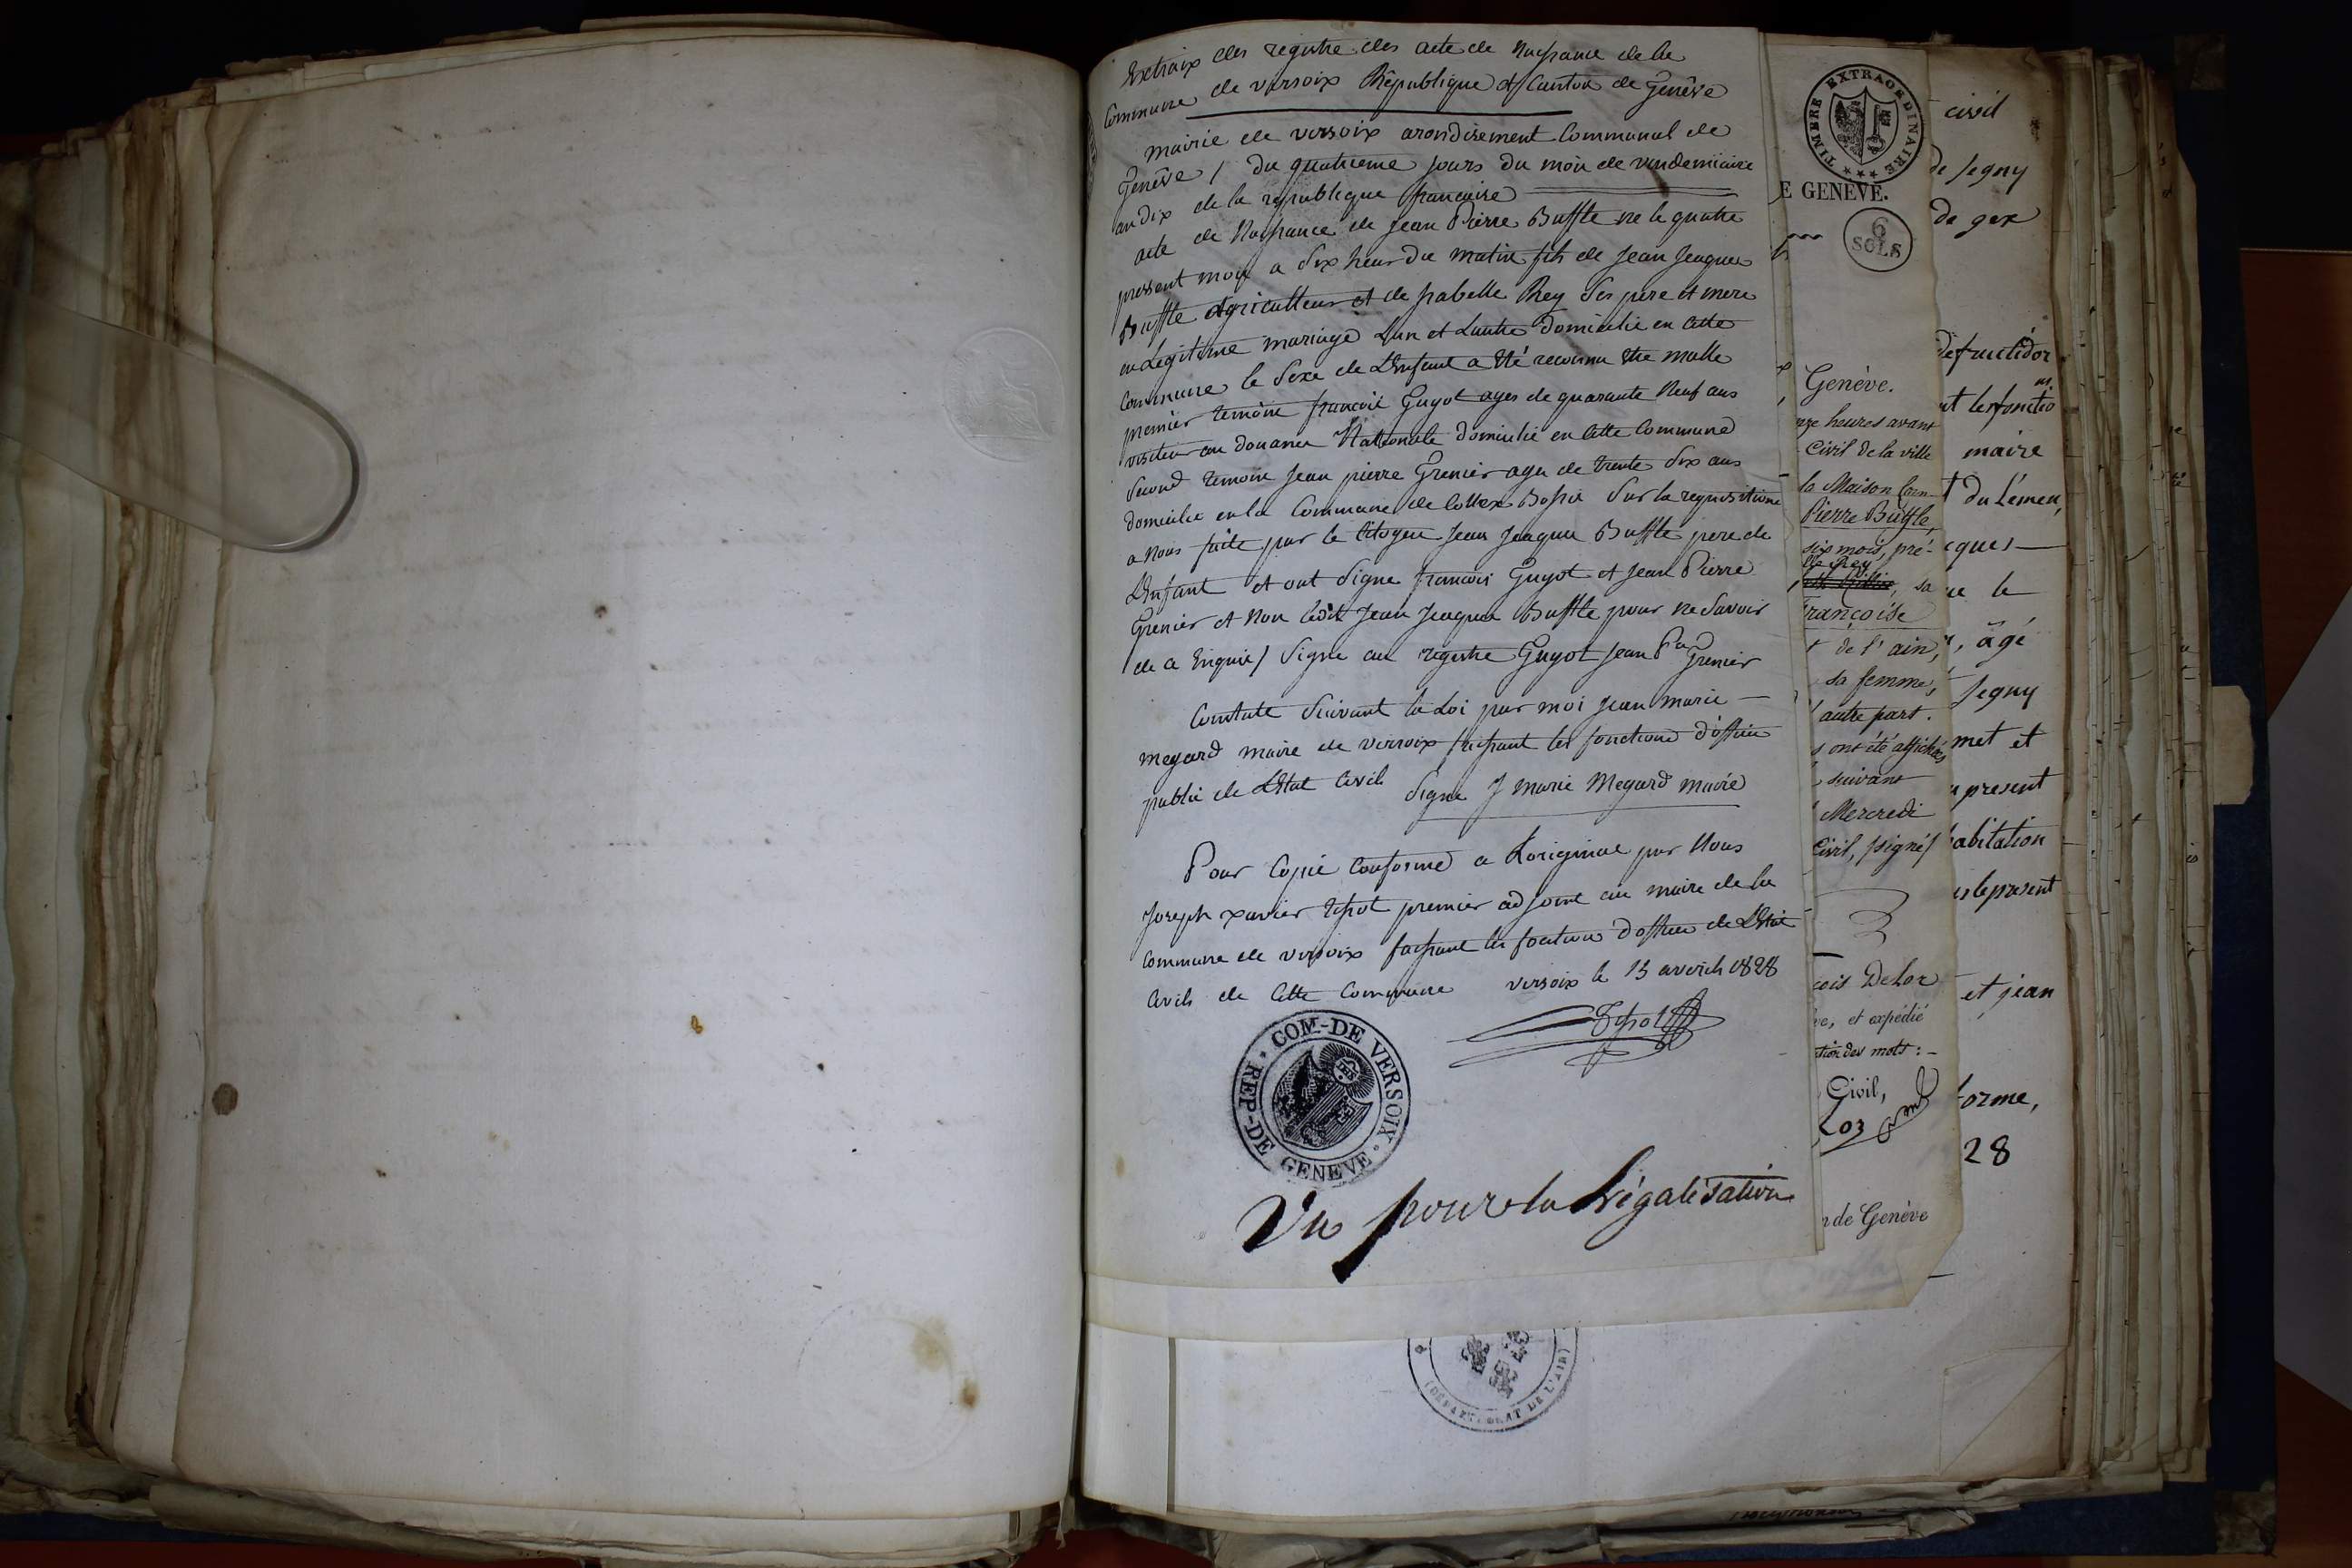 Extraix des registre des acte de Naissance de la
Commune de versoix République et Canton de Genêve
mairie de versoix arondisement Communal de
Genêve / du quatrieme jours du mois de vendemiaire
an dix de la republique francaise
acte de Naissance de Jean Pierre Buffle ne le quatre
present mois a Six heur du matin fils de Jean Jeaques
Buffle Agriculteur et de Isabelle Rey Ses pere et mere
en Legitime mariage Lun et Lautre domicilie en Cette
Commune le Sexe de L'Enfant a Eté reconnu Etre malle
premier temoin francois Guyot ages de quarante Neuf ans
visiteur au douanes Nationale domicilie en Cette Commune
Second temoin Jean pierre Grenier ages de trente Six ans
domicilie en la Commune de Collex Bossi Sur la requisitione
a Nous faite par le Citoyen Jean Jeaques Buffle pere de
L'Enfant et ont Signe francois Guyot et Jean Pierre
Grenier et Non ledit Jean Jeaques Buffle pour ne Savoir
de ce Enquis / Signe au registre Guyot Jean Pre Grenier
Constate Suivant la Loi par moi Jean Marie
Megard maire de versoix faissant les fonctions d'officier
public de L'Etat Civil Signe J Marie Megard maire
Pour Copie Conforme a Loriginal par Nous
Joseph xavier premier adjoint au maire de la
Commune de versoix faissant les fonction d'officier de L'Etat
Civils de Cette Commune versoix le 15 avrils 1828
COM-DE VERSOIX
REP-DE GENEVE
Vu pour la Légalisation
TIMBRE EXTRAORDINAIRE
E GENEVE.
6
SOLS
Genève.
heures avant
Civil de la ville
la Maison
Pierre Buffle,
six mois, pré-
Rey
sa
Françoise
de l'ain,
sa femme,
autre part.
ont été affichées
suivant
Mercredi
Civil, /signé/
Delor
et expédié
des mots:-
Civil,
de Genève
civil
de Segny
de gex
de fructidor
les fonctio
maire
du Léman,
cques
le
, âgé
Segny
met et
present
habitation
le present
et jean
forme,
28
DÉPARTEMENT DE L'AIN